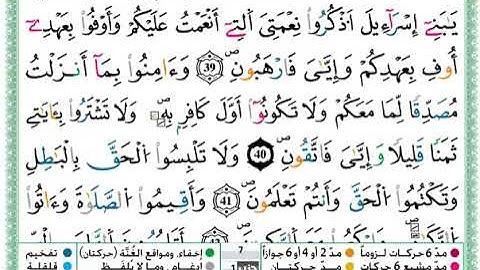 يَٰبَنِےٓ إِسْرَآءِيلَ اَذْكُرُوا۟ نِعْمَتِيَ اَلتِےٓ أَنْعَمْتُ عَلَيْكُمْ وَأَوْفُوا۟ بِعَهْدِےٓ
أُوفِ بِعَهْدِكُمْ وَإِيَّٰيَ فَارْهَبُونِۖ 39 وَءَامِنُوا۟ بِمَآ أَنزَلْتُ
مُصَدِّقًا لِّمَا مَعَكُمْ وَلَا تَكُونُوٓا۟ أَوَّلَ كَافِرِۭ بِهِۦۖ وَلَا تَشْتَرُوا۟ بِـَٔايَٰتِي
ثَمَنًا قَلِيلًا وَإِيَّٰيَ فَاتَّقُونِۖ 40 وَلَا تَلْبِسُوا۟ اُلْحَقَّ بِالْبَٰطِلِ
وَتَكْتُمُوا۟ اُلْحَقَّ وَأَنتُمْ تَعْلَمُونَۖ 41 وَأَقِيمُوا۟ اُلصَّلَوٰةَ وَءَاتُوا۟
مدّ 6 حركات لزوماً مدّ 2 أو 4 أو 6 جوازاً إخفاء، ومواقع الغُنَّة (حركتان) تفخيم
مدّ حركتان إدغام، وما لا يُلفَظ قلقلة